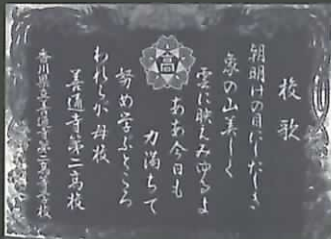 校歌
朝明けの目にしたしき
象の山美しく
雲に映えみゆるよ
ああ今日も
力満ちて
努め学ぶところ
われらが母校
善通寺第二高校
香川県立善通寺第二高等学校
高